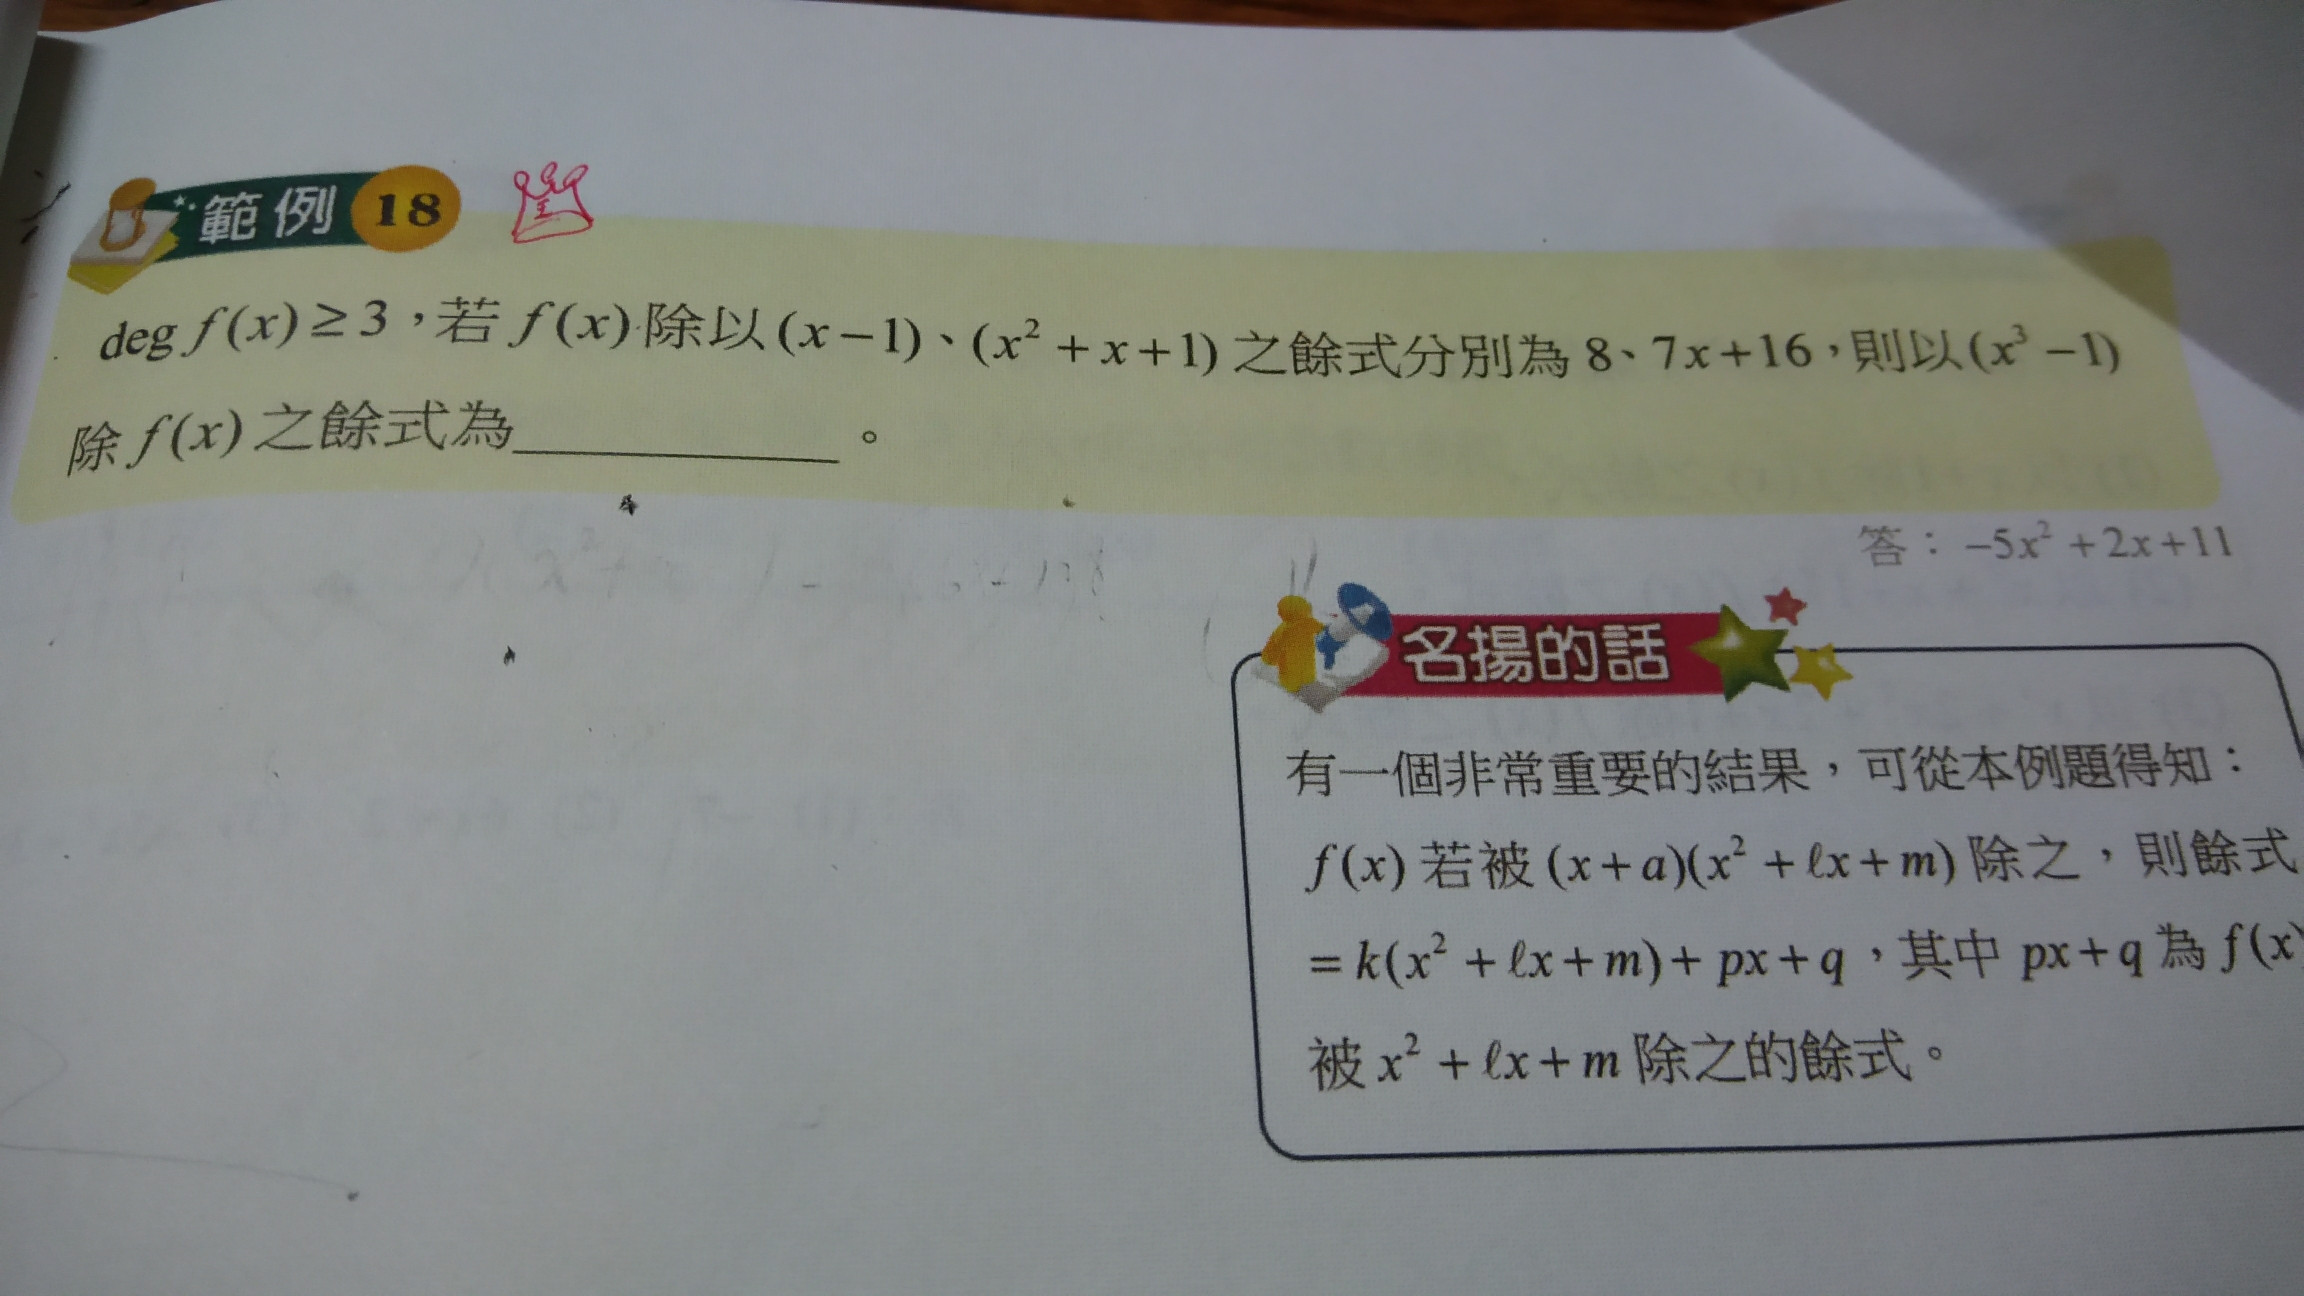 範例 18
deg f(x) ≥ 3，若 f(x) 除以 (x−1)、(x²+x+1) 之餘式分別為 8、7x+16，則以 (x³−1)
除 f(x) 之餘式為__________。
答：−5x²+2x+11
名揚的話
有一個非常重要的結果，可從本例題得知：
f(x) 若被 (x+a)(x²+ℓx+m) 除之，則餘式
=k(x²+ℓx+m)+px+q，其中 px+q 為 f(x)
被 x²+ℓx+m 除之的餘式。